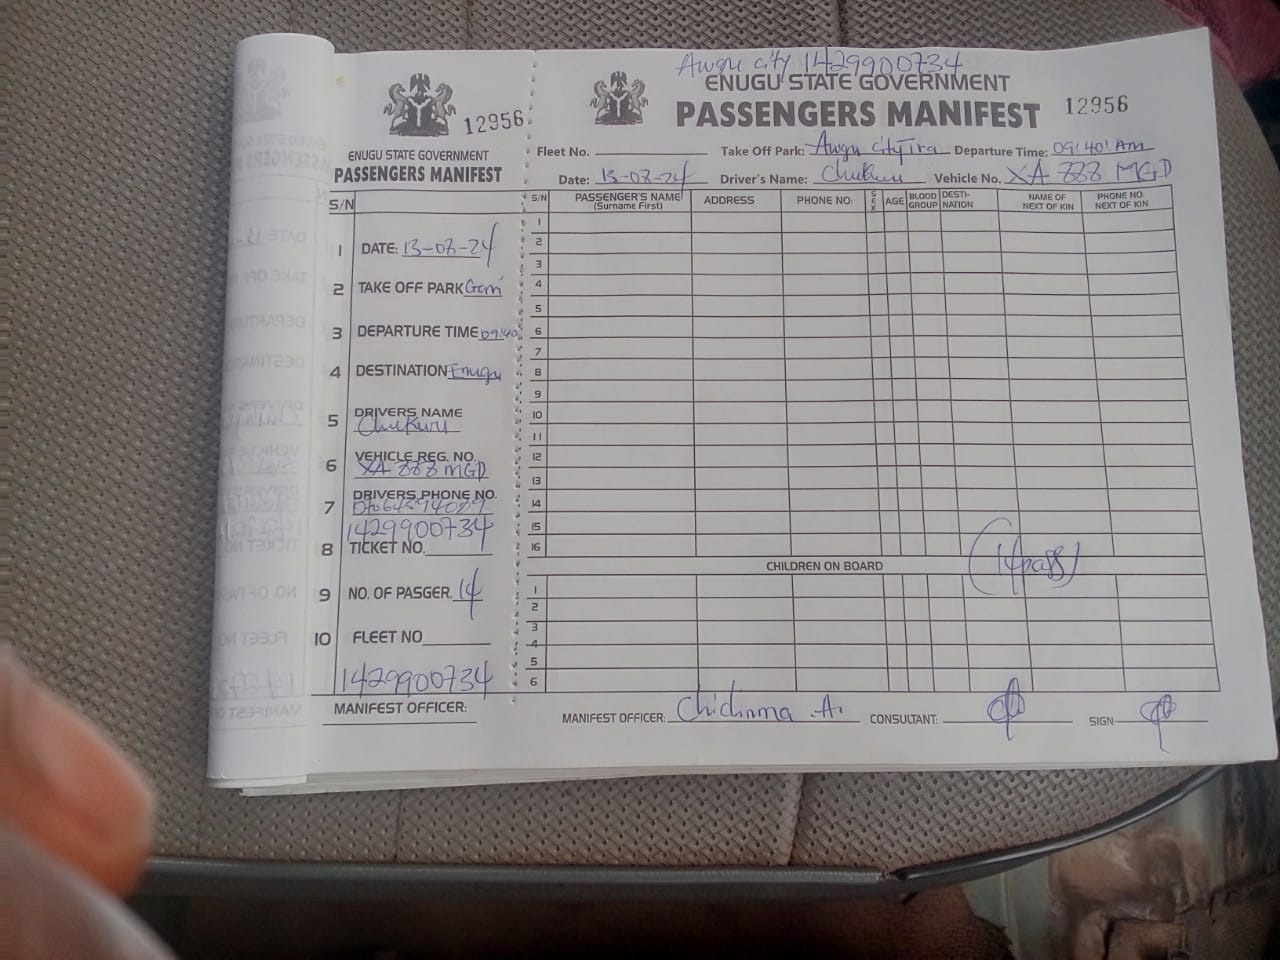 12956
ENUGU STATE GOVERNMENT
PASSENGERS MANIFEST
S/N
1 DATE: 13-08-24
2 TAKE OFF PARK
3 DEPARTURE TIME 09:40
4 DESTINATION Enugu
5 DRIVERS NAME
Chukwu
6 VEHICLE REG. NO.
XA 888 MGD
7 DRIVERS PHONE NO.
1429900734
8 TICKET NO.
9 NO. OF PASGER. 14
10 FLEET NO
1429900734
MANIFEST OFFICER:
Awgu city 1429900734
ENUGU STATE GOVERNMENT
PASSENGERS MANIFEST 12956
Fleet No. Take Off Park: Awgu city Departure Time: 09:40 AM
Date: 13-08-24 Driver's Name: Chukwu Vehicle No. XA 888 MGD
S/N PASSENGER'S NAME (Surname First) ADDRESS PHONE NO: SEX AGE BLOOD GROUP DESTI-NATION NAME OF NEXT OF KIN PHONE NO: NEXT OF KIN
1
2
3
4
5
6
7
8
9
10
11
12
13
14
15
16
CHILDREN ON BOARD
(14pass)
1
2
3
4
5
6
MANIFEST OFFICER: Chidinma .A. CONSULTANT: SIGN